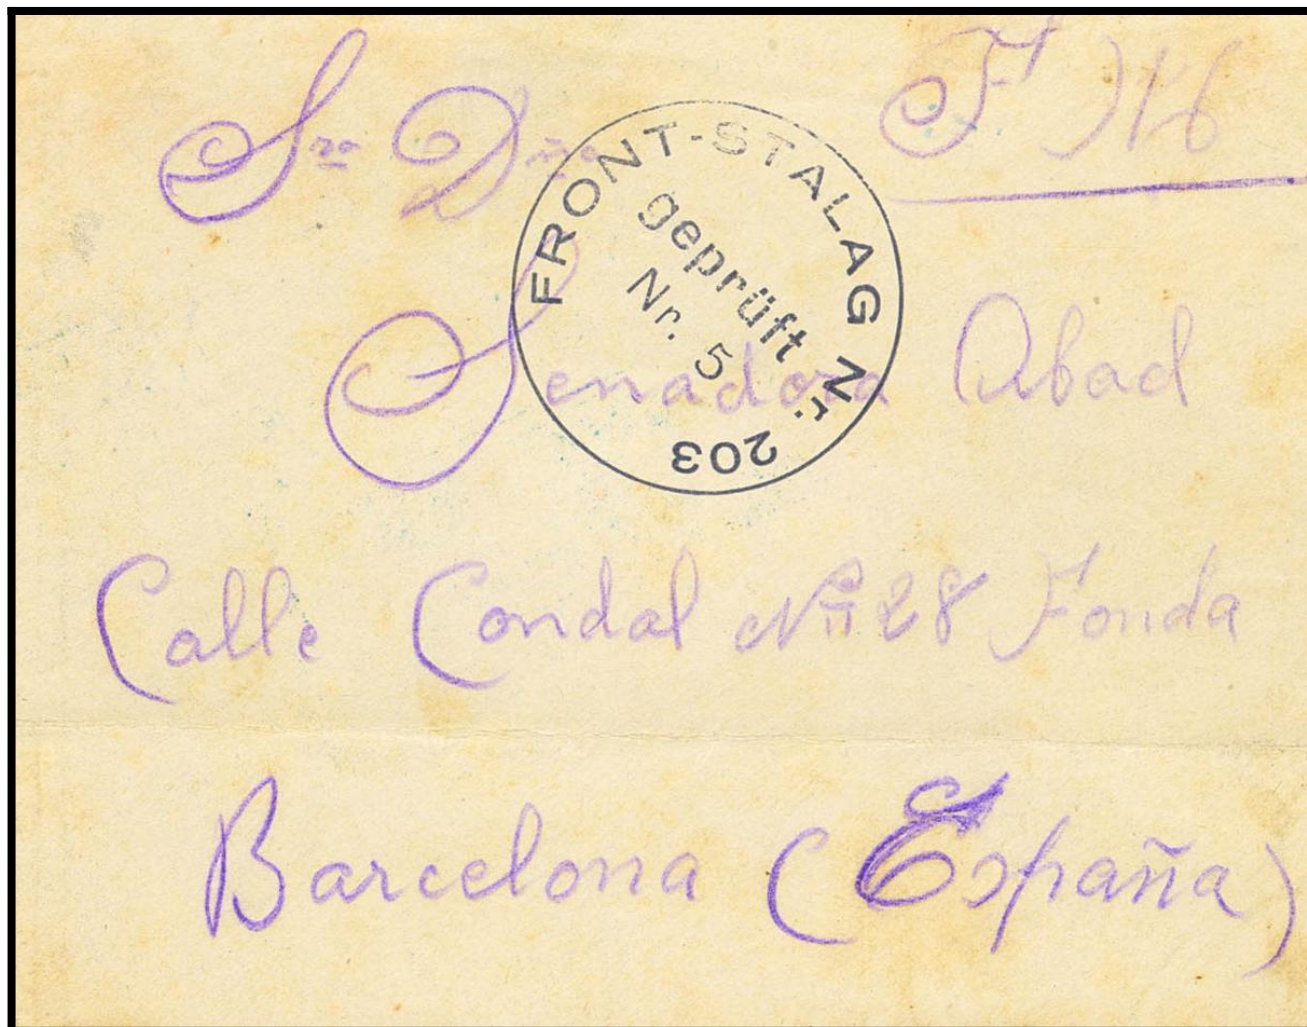 Sra Dña
FRONT-STALAG Nr. 203
geprüft
Nr. 5
Senadora Abad
Calle Condal Nº 28 Fonda
Barcelona (España)